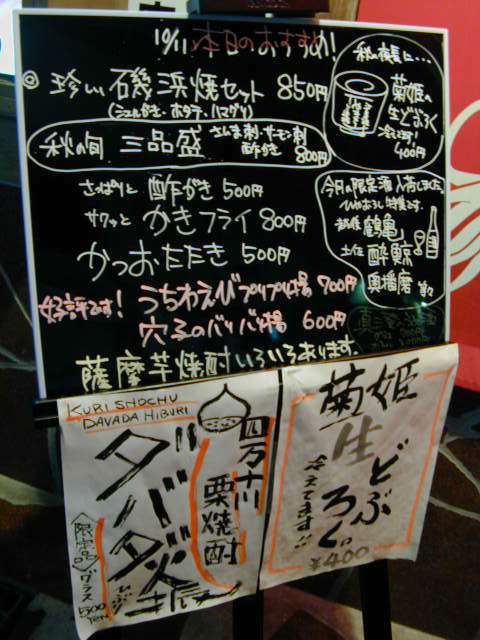 10/11 本日のおすすめ!
◎ 珍しい 磯浜焼セット 850円
(シェルがき・ホタテ・ハマグリ)
秋の旬 三品盛 さんま刺・サーモン刺
酢がき 800円
さっぱりと 酢がき 500円
サクッと かきフライ 800円
かつおたたき 500円
好評です! うちわえびプリプリ焼 900円
穴子のバリバリ揚 600円
薩摩芋焼酎いろいろあります。
秋の夜長に…
菊姫の
生どぶろく
冷えてます!
400円
今月の限定酒入荷しました。
ひやおろし特集です。
新潟 鶴亀
土佐 酔鯨
奥播磨 等々
KURI SHOCHU
DAVADA HIBURI
ダバダ火振
ひぶり
四万十川
栗焼酎
限定品
グラス
500
YEN
菊姫
生
どぶろく。
冷えてます!!
¥400